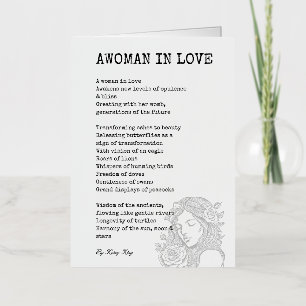 AWOMAN IN LOVE
A woman in love
Awakens new levels of opulence
& bliss
Creating with her womb,
generations of the future
Transforming ashes to beauty
Releasing butterflies as a
sign of transformation
With vision of an eagle
Roars of lions
Whispers of humming birds
Freedom of doves
Gentleness of swans
Grand displays of peacocks
Wisdom of the ancients,
flowing like gentle rivers
Longevity of turtles
Harmony of the sun, moon &
stars